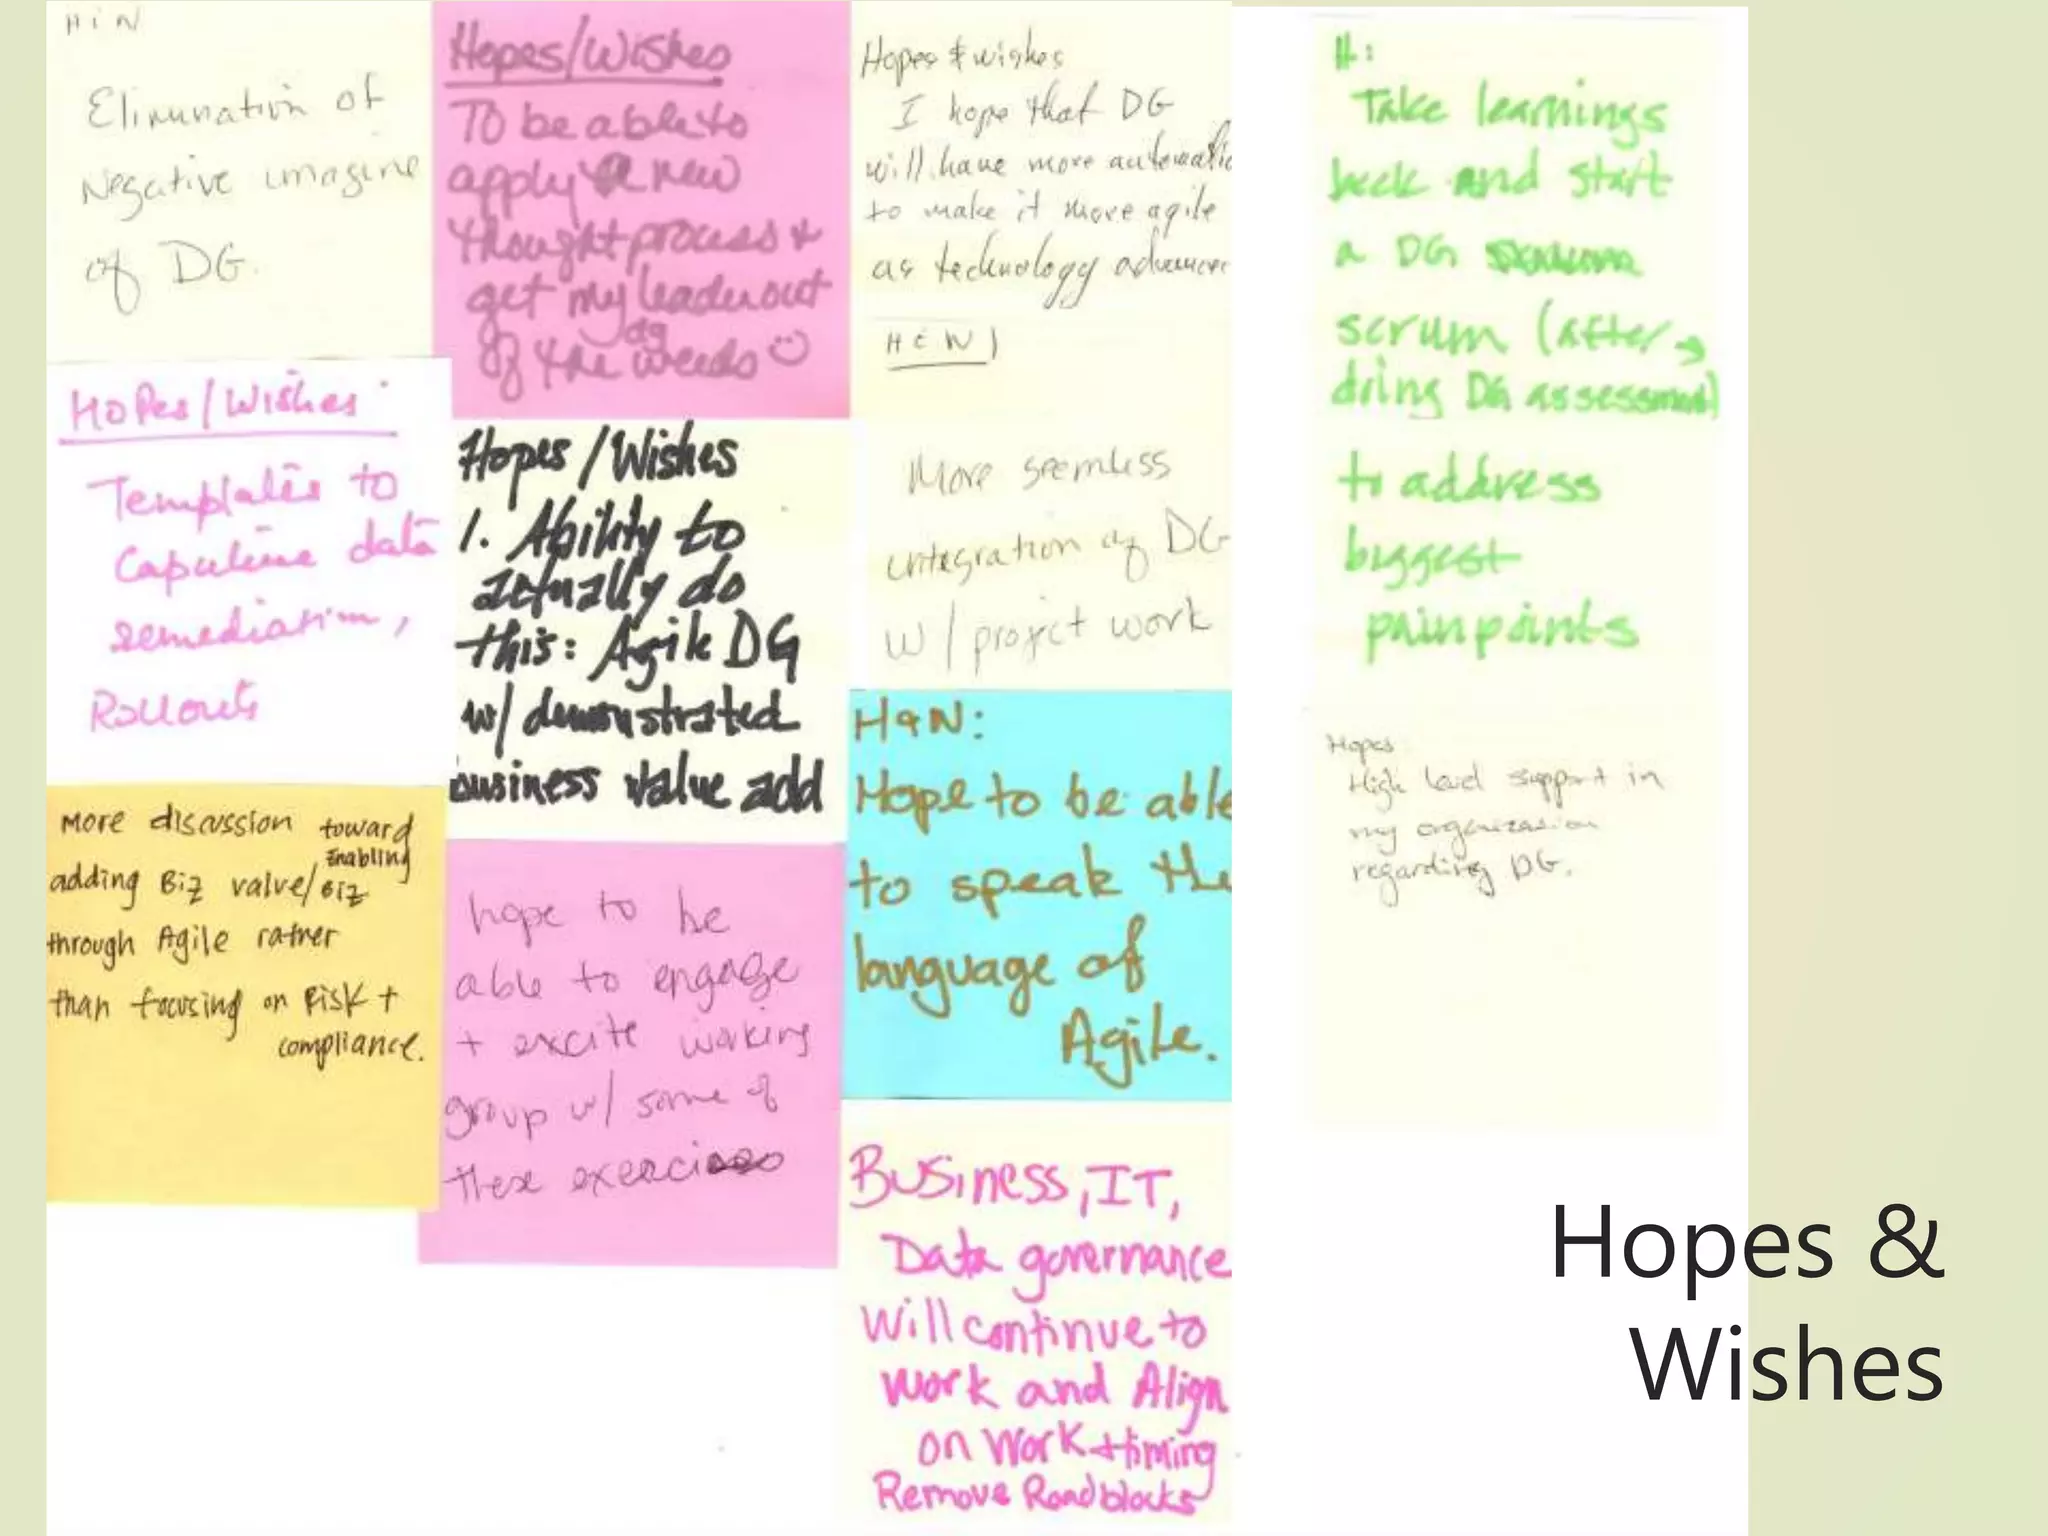 H i N
Elimination of
Negative imagine
of DG.
Hopes/Wishes
Templates to
data
remediation,
Rollouts
More discussion toward
adding Biz value/Enabling Biz
through Agile rather
than focusing on Risk +
compliance.
Hopes/Wishes
To be able to
apply new
thought process +
get my leader out
of the dg weeds
Hopes/Wishes
1. Ability to
actually do
this: Agile DG
w/ demonstrated
business value add
hope to be
able to engage
+ excite working
group w/ some of
these exercises
Hopes & wishes
I hope that DG
will have more automatio
to make it more agile
as technology advances
More seemless
integration of DG
w/ project work
H&W:
Hope to be able
to speak the
language of
Agile.
Business, IT,
Data governance
Will continue to
work and Align
on Work + timing
Remove Roadblocks
H:
Take learnings
back and start
a DG
scrum (after →
doing DG assessment)
to address
biggest
painpoints
Hopes
High level support in
my organization
regarding DG.
Hopes &
Wishes